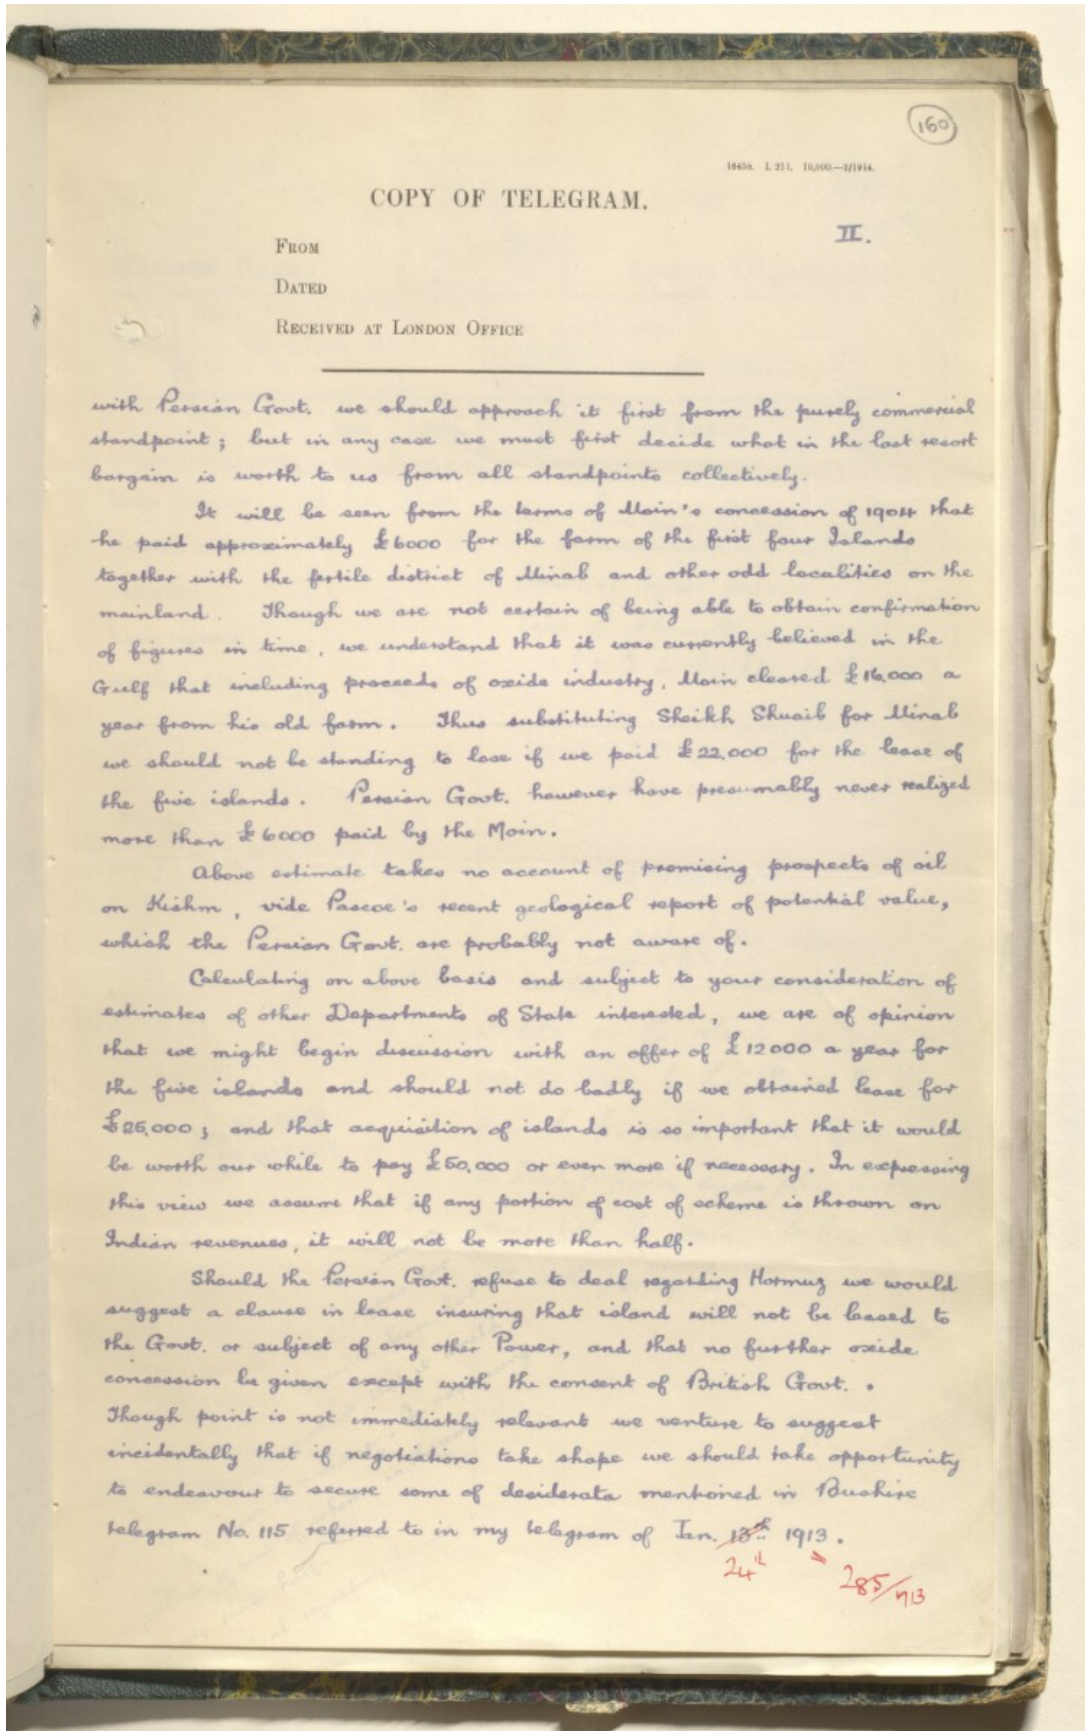 160
16438. I. 211. 10,000.—2/1914.
COPY OF TELEGRAM.
II.
FROM
DATED
RECEIVED AT LONDON OFFICE
with Persian Govt. we should approach it first from the purely commercial
standpoint; but in any case we must first decide what in the last resort
bargain is worth to us from all standpoints collectively.
It will be seen from the terms of Moin's concession of 1904 that
he paid approximately £6000 for the farm of the first four Islands
together with the fertile district of Minab and other odd localities on the
mainland. Though we are not certain of being able to obtain confirmation
of figures in time, we understand that it was currently believed in the
Gulf that including proceeds of oxide industry, Moin cleared £16,000 a
year from his old farm. Thus substituting Sheikh Shuaib for Minab
we should not be standing to lose if we paid £22,000 for the lease of
the five islands. Persian Govt. however have presumably never realized
more than £6000 paid by the Moin.
Above estimate takes no account of promising prospects of oil
on Kishm, vide Pascoe's recent geological report of potential value,
which the Persian Govt. are probably not aware of.
Calculating on above basis and subject to your consideration of
estimates of other Departments of State interested, we are of opinion
that we might begin discussion with an offer of £12000 a year for
the five islands and should not do badly if we obtained lease for
£25,000; and that acquisition of islands is so important that it would
be worth our while to pay £50,000 or even more if necessary. In expressing
this view we assume that if any portion of cost of scheme is thrown on
Indian revenues, it will not be more than half.
Should the Persian Govt. refuse to deal regarding Hormuz we would
suggest a clause in lease insuring that island will not be leased to
the Govt. or subject of any other Power, and that no further oxide
concession be given except with the consent of British Govt. .
Though point is not immediately relevant we venture to suggest
incidentally that if negotiations take shape we should take opportunity
to endeavour to secure some of desiderata mentioned in Bushire
telegram No. 115 referred to in my telegram of Jan. 13th 1913.
24th
285/1913